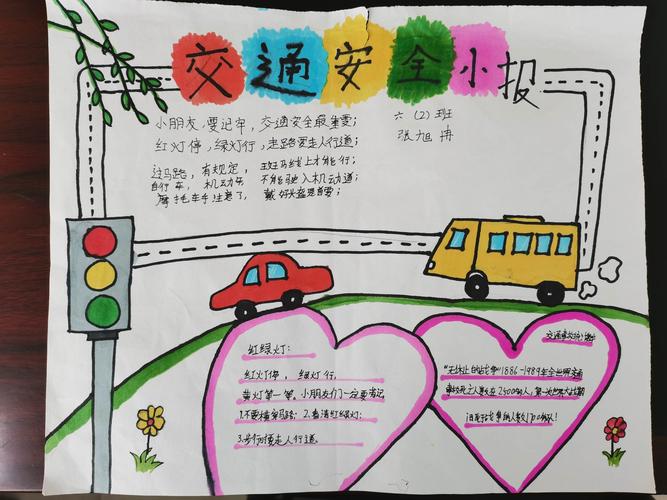 交通安全小报
六(2)班
张旭冉
小朋友,要记牢,交通安全最重要;
红灯停,绿灯行,走路要走人行道;
过马路,有规定,斑马线上才能行;
自行车,机动车,不能驶入机动道;
摩托车手注意了,戴好头盔最重要;
红绿灯:
红灯停,绿灯行,
黄灯等一等,小朋友们一定要牢记
1.不要横穿马路;2.看清红绿灯;
3.步行须走人行道。
交通事故
"无休止的战争"1886-1989年全世界交通
事故死亡人数在2500万人,第一次世界大战期